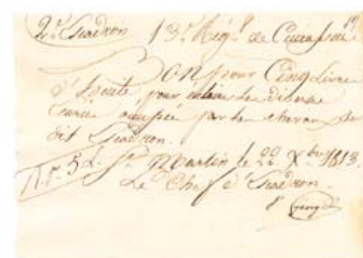 2e Escadron 13e Régt de Cuirassiers
Bon pour Cinq Livres
d'
pour les diverses
occupée par les chevaux du
dit Escadron.
St Martin le 22 Xbre 1813.
Le Chef d'Escadron